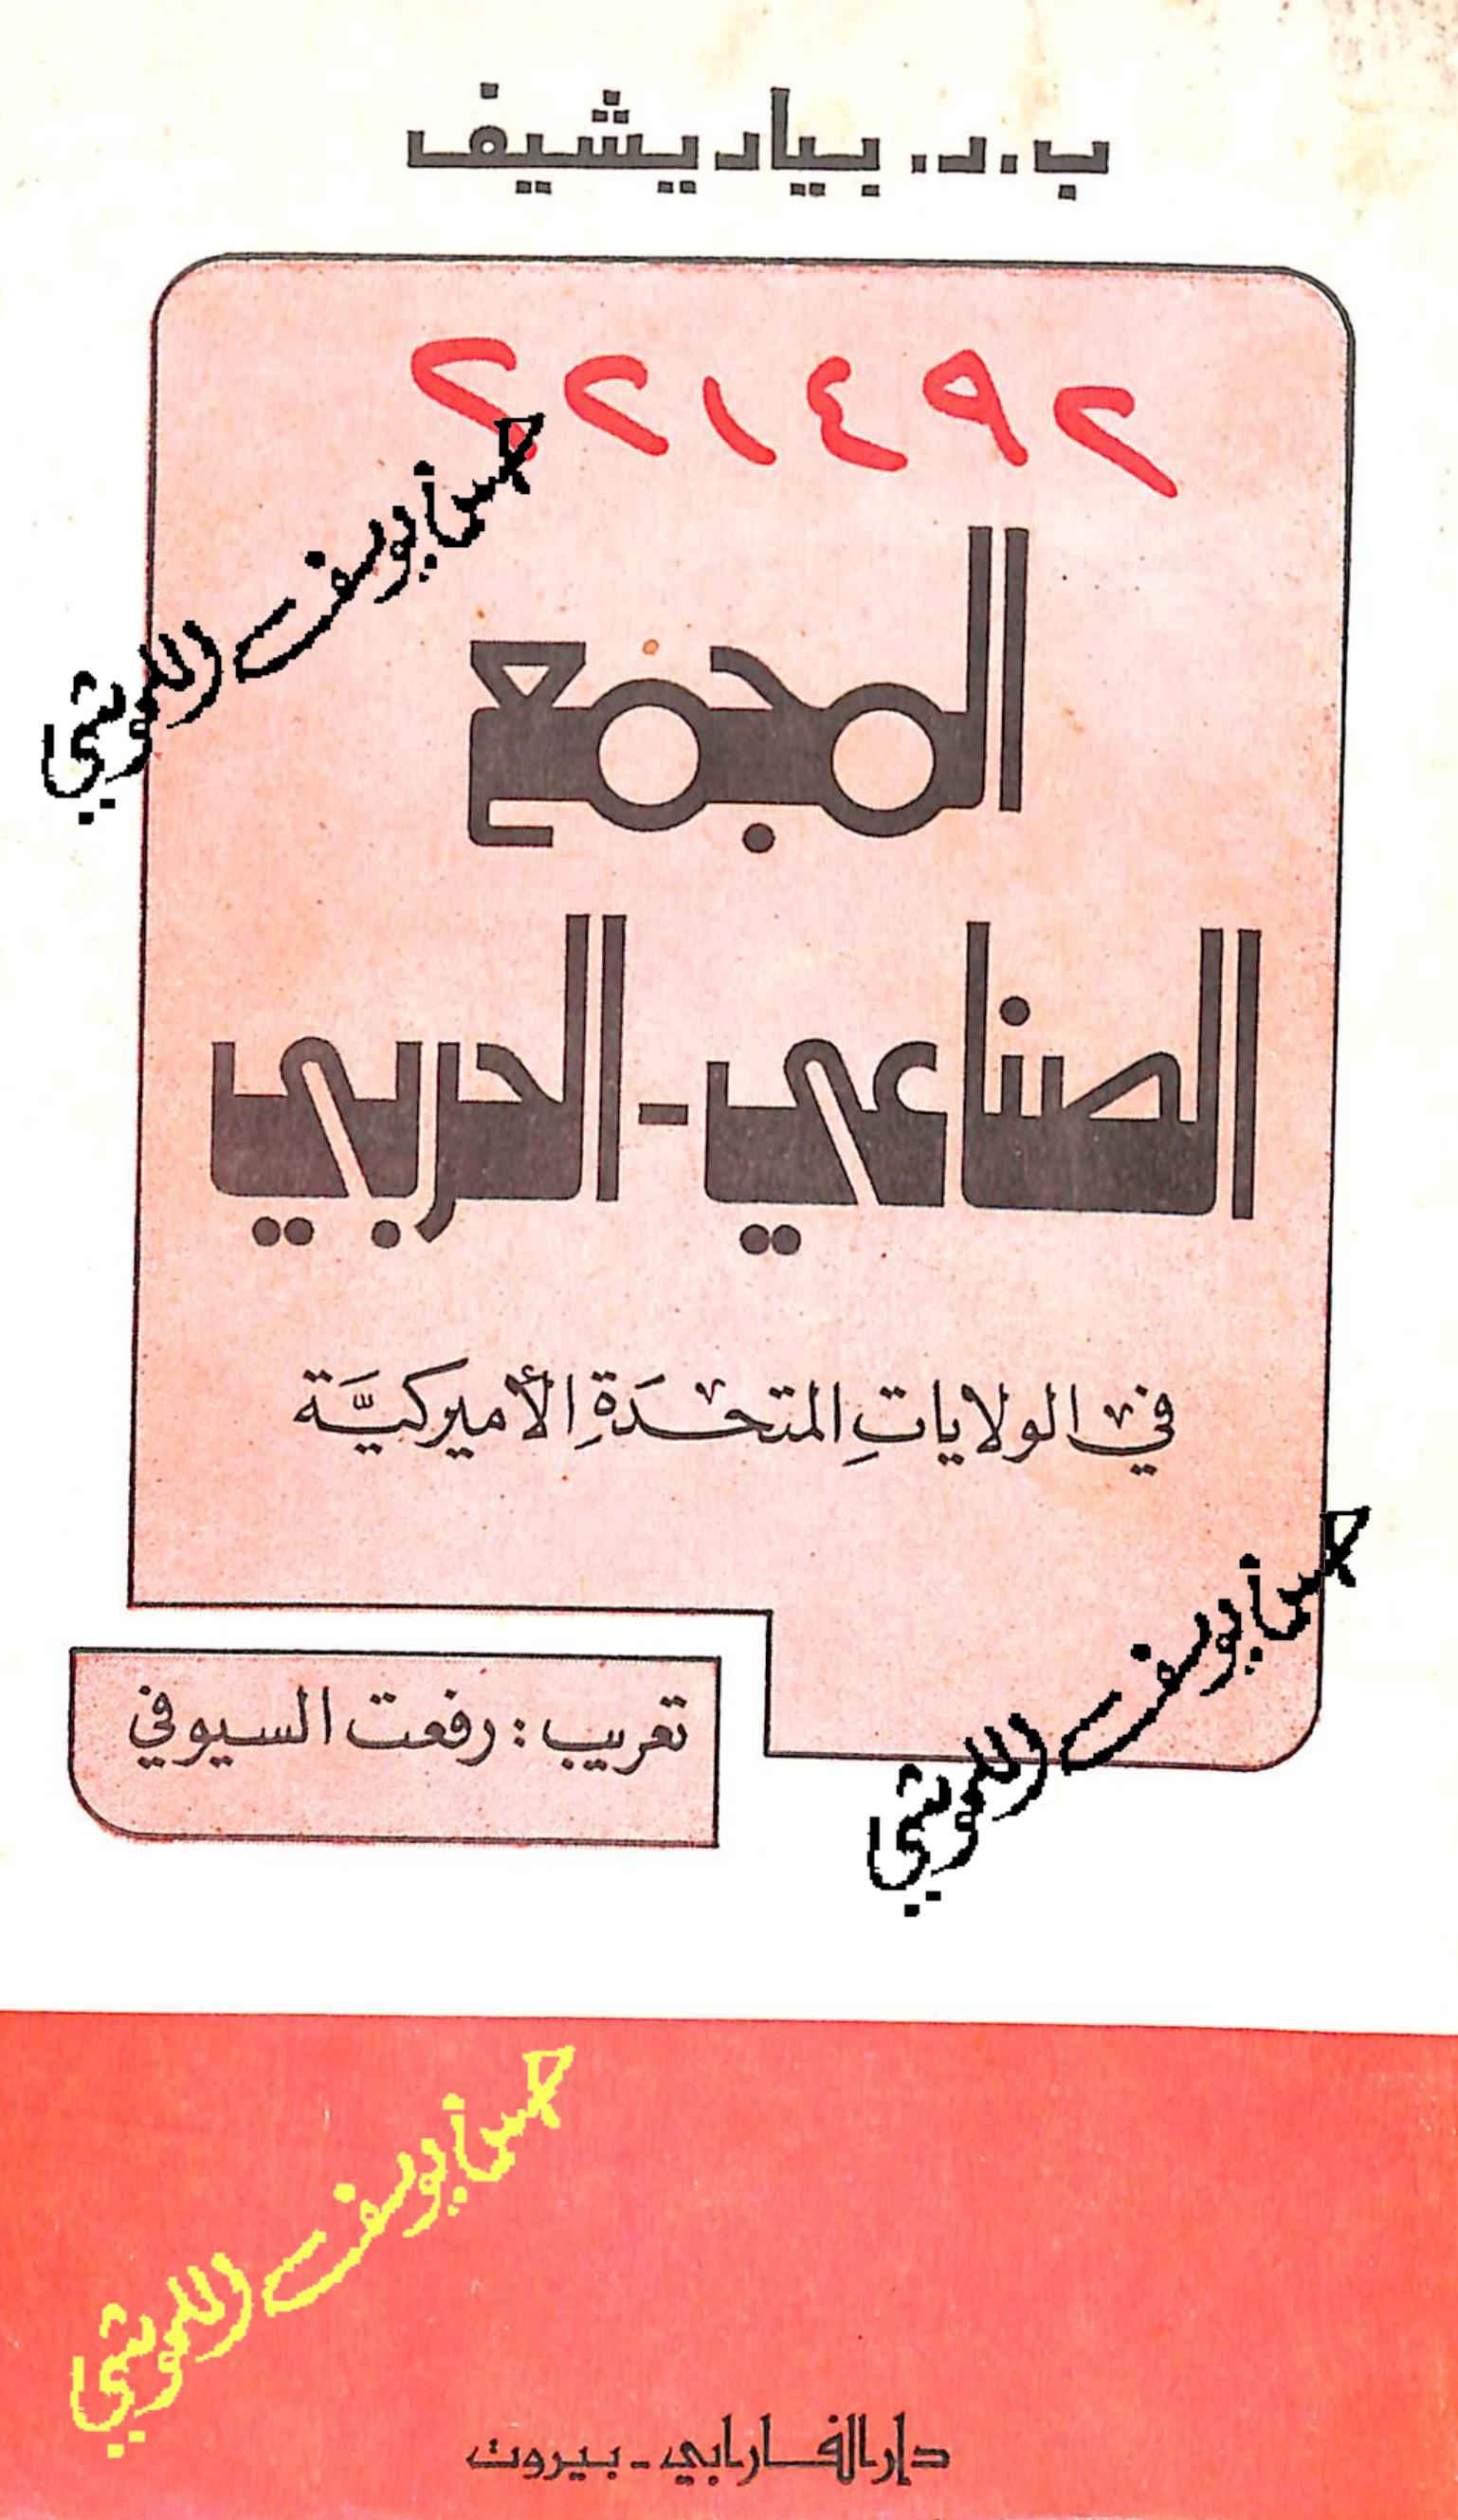 ب.د. بياديشيف
٢٢١٤٩٢
المجمع
الصناعي - الحربي
في الولاياتِ المتحدَةِ الأميركيَّة
تعريب : رفعت السيوفي
دار الفارابي - بيروت